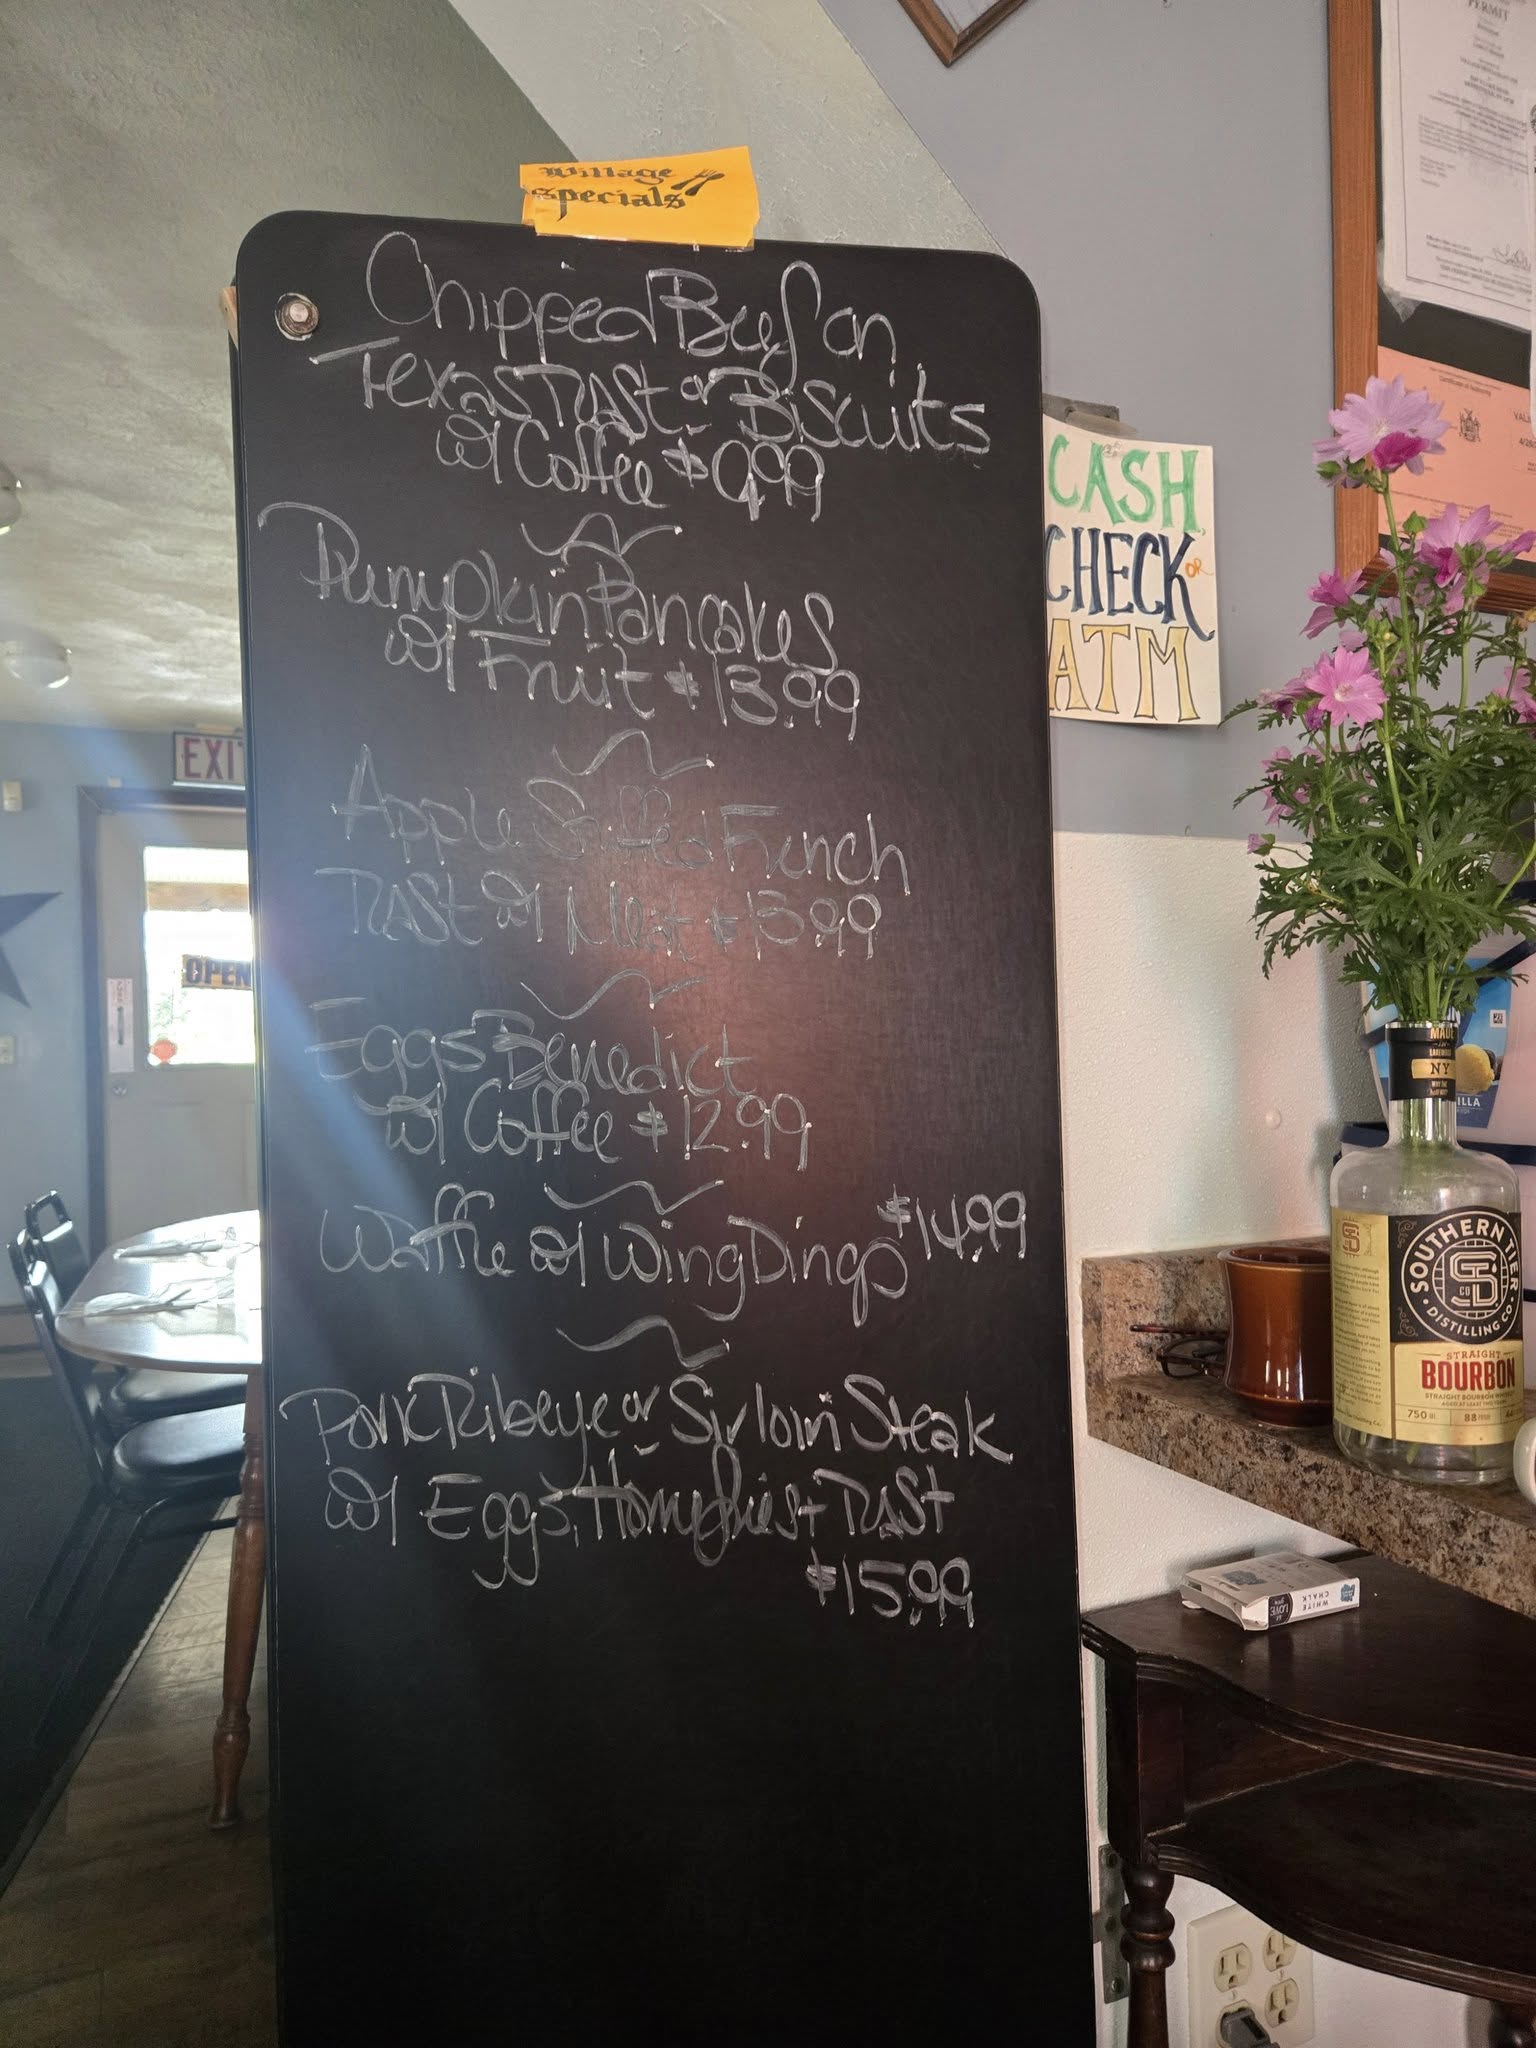 Village
specials
Chipped Beef on
Texas Toast or Biscuits
w/ Coffee $9.99
Pumpkin Pancakes
w/ Fruit $13.99
Apple Stuffed French
Toast w/ Meat $13.99
Eggs Benedict
w/ Coffee $12.99
Waffle w/ WingDings $14.99
Pork Ribeye or Sirloin Steak
w/ Eggs, Homefries + Toast
$15.99
CASH,
CHECK OR
ATM
EXIT
OPEN
PERMIT
MADE
NY
ILLA
SOUTHERN TIER
DISTILLING CO.
STRAIGHT
BOURBON
STRAIGHT BOURBON WHISKEY
750 ml
88
LOVE
WHITE
CHALK